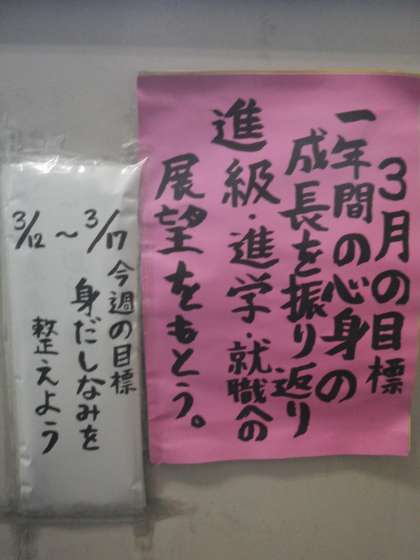 3月の目標
一年間の心身の
成長を振り返り
進級・進学・就職への
展望をもとう。
3/12 ～ 3/17
今週の目標
身だしなみを
整えよう